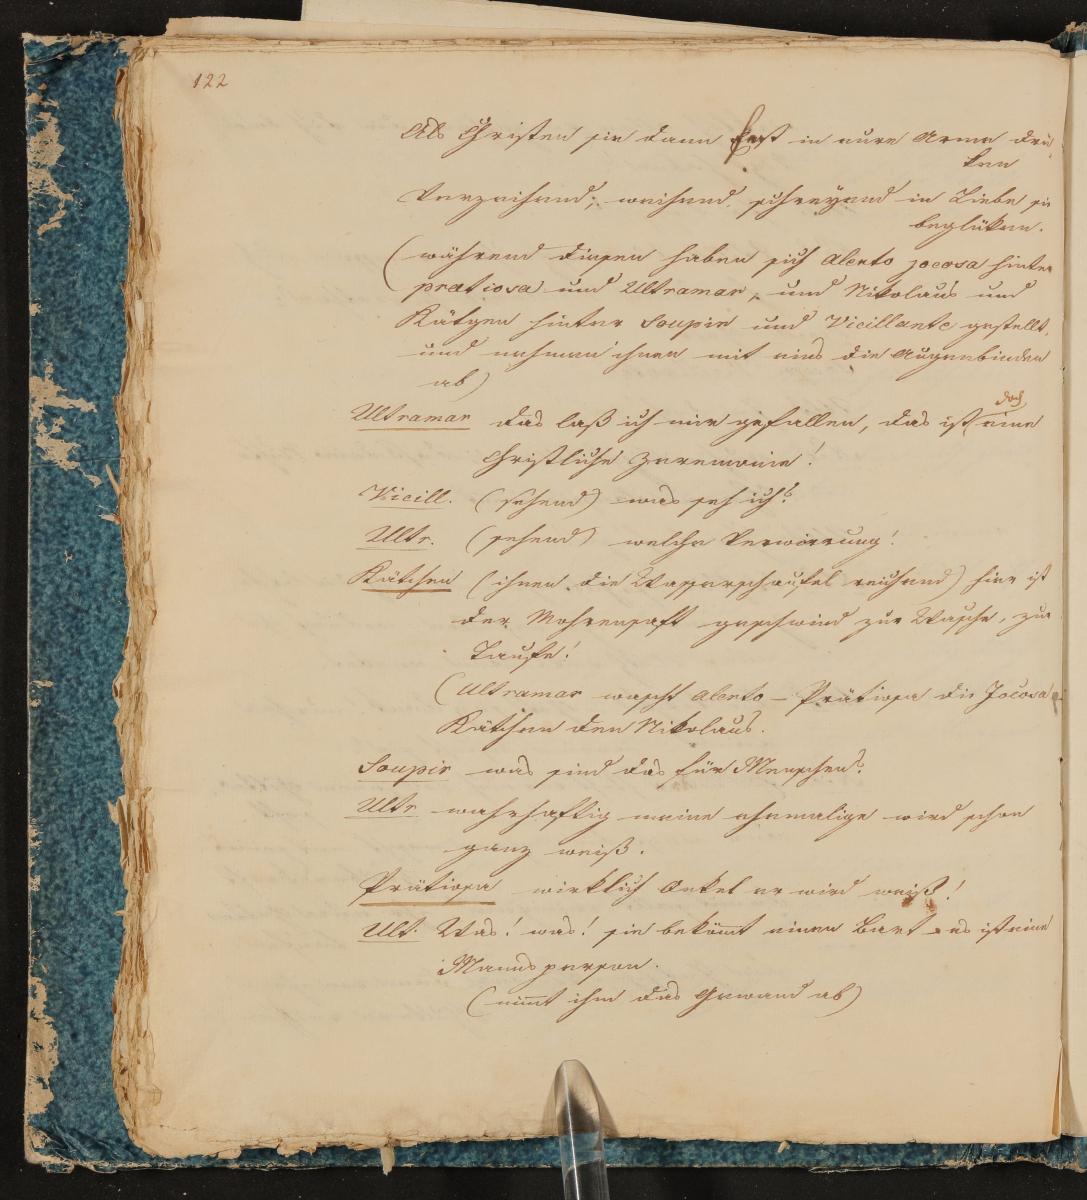 122
Als Christen sie dann fest in eure Arme drü,
ken
Verzeihend, weihend, schreyend in Liebe sie
beglüken.
(während diesen haben sich Alento jocosa hinter
pretiosa und Ultramar, und Nikolaus und
Kätgen hinter Soupir und Vicillante gestellt,
und nehmen ihnen mit eins die Augenbinden
ab)
doch
Ultramar das laß ich mir gefallen, das ist eine
Christliche Zeremonie!
Vicill. (sehend) was seh ich?
Ultr. (sehend) welche Verwirrung!
Kätchen (ihnen die Wasserschaufel reichend) hier ist
der Mohrensaft geschwind zur Wasche, zur
Taufe!
(Ultramar wascht Alento – Prätiosa die Jocosa
Kätchen den Nikolaus.
Soupir was sind das für Menschen?
Ultr. wahrhaftig meine ehemalige wird schon
ganz weiß.
Prätiosa wirklich Onkel er wird weiß!
Ult: Was! was! sie bekömt einen Bart es ist eine
Manns person.
(nimt ihm das Gewand ab)